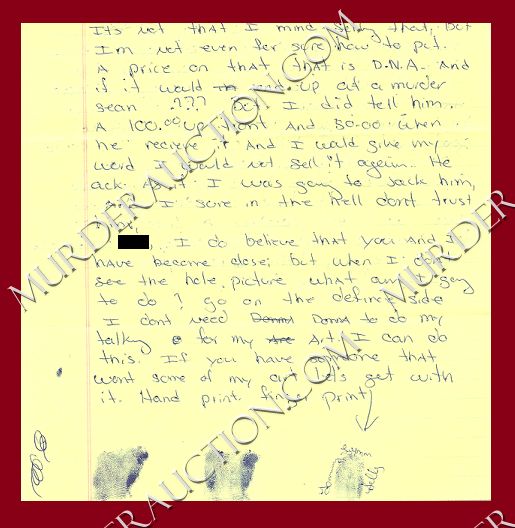 It's not that I mind selling that, But
I'm not even for sure how to put
A price on that that is D.N.A. And
if it would end up at a murder
sean ??? But I did tell him,
A 100.00 up front And 50.00 when
he recieve it And I would give my
word I would not sell it again. He
ack I was going to Jack him,
I sure in the hell don't trust
I do believe that you and I
have become close, but when I don't
see the hole picture what am I going
to do? go on the defince side
I dont need Donna to do my
talking for my Art I can do
this. If you have someone that
want some of my art let's get with
it. Hand print finger print
MURDERAUCTION.COM
MURDERAUCTION.COM
MURDERAUCTION.COM